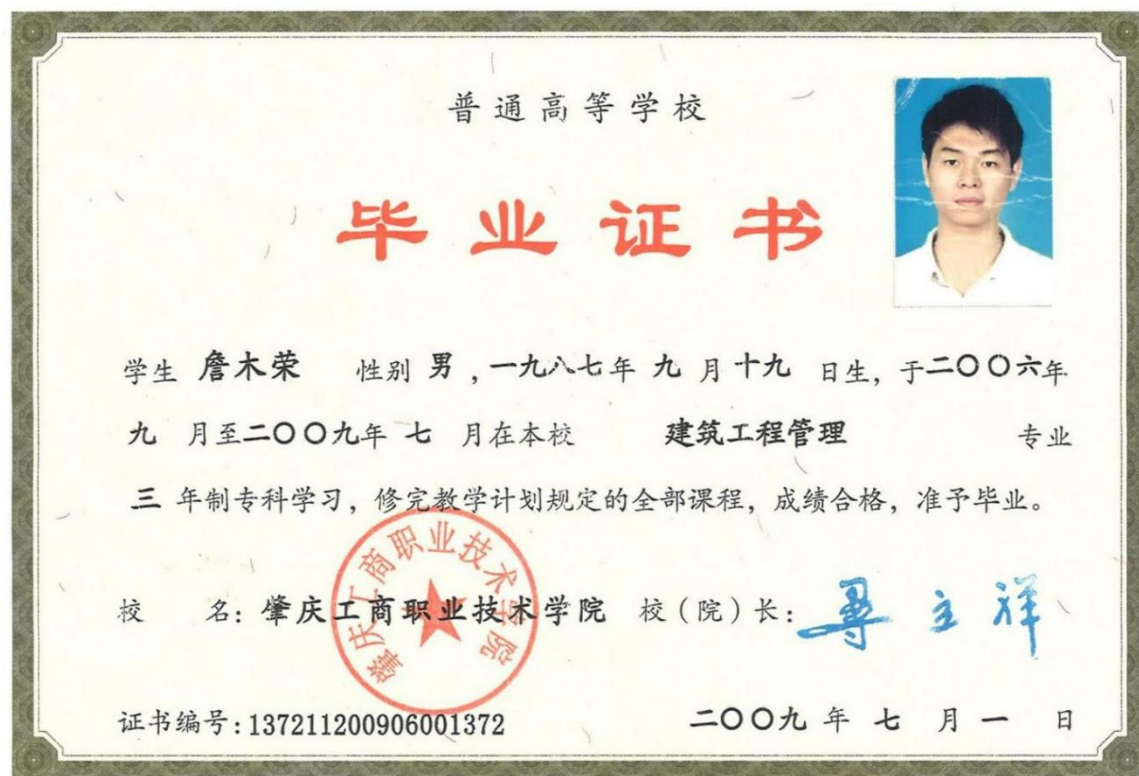 普通高等学校
毕业证书
学生 詹木荣 性别 男，一九八七年 九 月 十九 日生，于二〇〇六年
九 月至二〇〇九年 七 月在本校 建筑工程管理 专业
三 年制专科学习，修完教学计划规定的全部课程，成绩合格，准予毕业。
肇庆工商职业技术学院
校 名：肇庆工商职业技术学院 校（院）长：寻立祥
证书编号：137211200906001372 二〇〇九 年 七 月 一 日